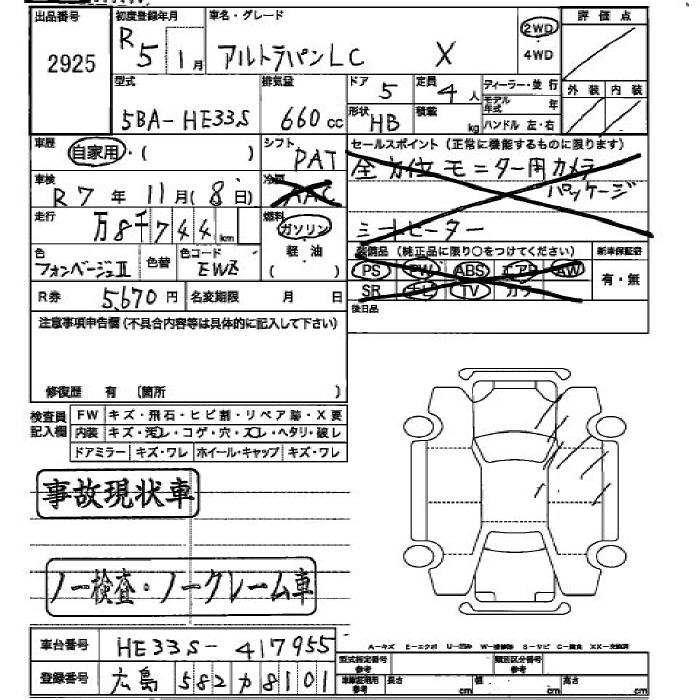 出品番号 初度登録年月 車名・グレード 評価点
2925 R5 1月 アルトラパンLC X 2WD 4WD
外装 内装
型式 排気量 ドア 5 定員 4人 ディーラー・並行
5BA-HE33S 660cc 形状 HB 積載 kg モデル年式 年
ハンドル 左・右
車歴 自家用・( ) シフト PAT セールスポイント (正常に機能するものに限ります)
全方位モニター用カメラ
パッケージ
車検 R7年11月(8日) 冷房 AAC
走行 万8千744km 燃料 ガソリン シートヒーター
軽油
( )
色 フォンベージュⅡ 色替 色コード 装備品 (純正品に限り○をつけてください) 新車保証書
PS PW ABS エアB AW 有・無
R券 5,670円 名変期限 月 日 SR ナビ TV カワ
後日品
注意事項申告欄 (不具合内容等は具体的に記入して下さい)
修復歴 有 (箇所 )
検査員記入欄 FW キズ・飛石・ヒビ割・リペア跡・X要
内装 キズ・汚レ・コゲ・穴・スレ・ヘタリ・破レ
ドアミラー キズ・ワレ ホイール・キャップ キズ・ワレ
事故現状車
ノー検査・ノークレーム車
A-キズ E-エクボ U-凹み W-補修跡 S-サビ C-腐食 XX-交換済
車台番号 HE33S-417955 型式指定番号 参考 類別区分番号 参考
登録番号 広島 582 カ 8101 車庫証明用 参考 長さ cm 幅 cm 高さ cm